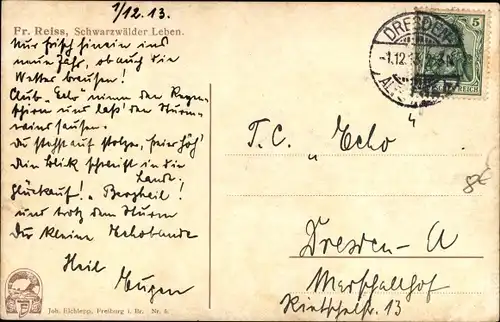 1/12.13.
Fr. Reiss, Schwarzwälder Leben.
Nur frisch hinein ins
neue Jahr, ob auch die
Wetter brausen!
Club "Echo" nimm den Regen-
schirm und lass' den Sturm-
wind sausen.
Du stehst auf stolzer, freier Höh'
Dein Blick schweift in die
Lande.
Glückauf! "Bergheil"!
und trotz dem Sturm
Du kleine Echobande
Heil
Eugen
Joh. Elchlepp, Freiburg i. Br. Nr. 5.
DRESDEN
-1.12.13
ALTST.
5
REICH
T.C. "Echo
Dresden-A
Marschallhof
Rietschelstr. 13